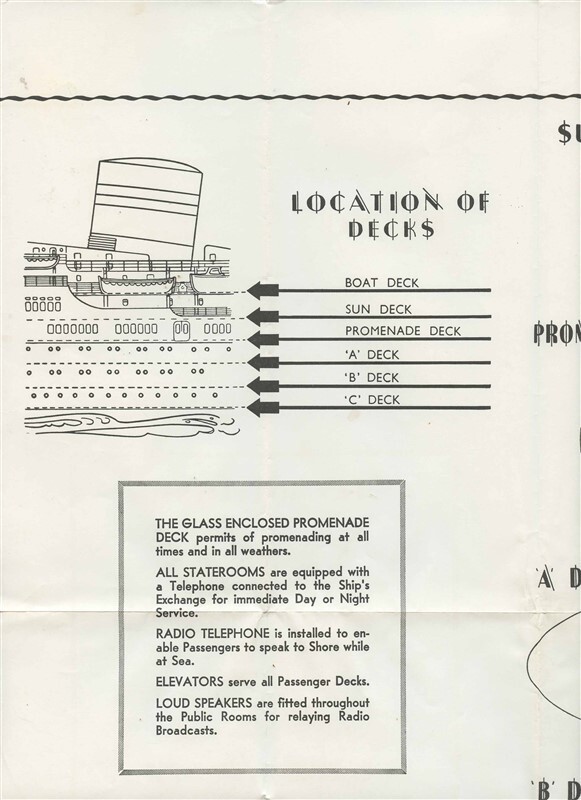 LOCATION OF
DECKS
BOAT DECK
SUN DECK
PROMENADE DECK
'A' DECK
'B' DECK
'C' DECK
THE GLASS ENCLOSED PROMENADE
DECK permits of promenading at all
times and in all weathers.
ALL STATEROOMS are equipped with
a Telephone connected to the Ship's
Exchange for immediate Day or Night
Service.
RADIO TELEPHONE is installed to en-
able Passengers to speak to Shore while
at Sea.
ELEVATORS serve all Passenger Decks.
LOUD SPEAKERS are fitted throughout
the Public Rooms for relaying Radio
Broadcasts.
SU
PROM
'A' D
'B' D